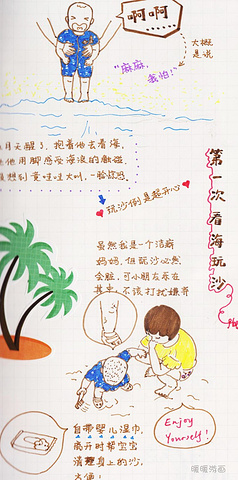 啊啊……
大概
是说
"麻麻,
害怕!"
月天醒了,抱着他去看海,
他用脚感受海浪的
想到黄哇哇大叫,一脸
玩沙倒是超开心
第一次看海玩沙
虽然我是一个洁癖
妈妈,但玩沙必然
会脏,可小朋友乐在
其中,不该打扰嫌弃
自带婴儿湿巾,
离开时帮宝宝
清理身上的沙,
方便!
Enjoy
Yourself!
暖暖海画